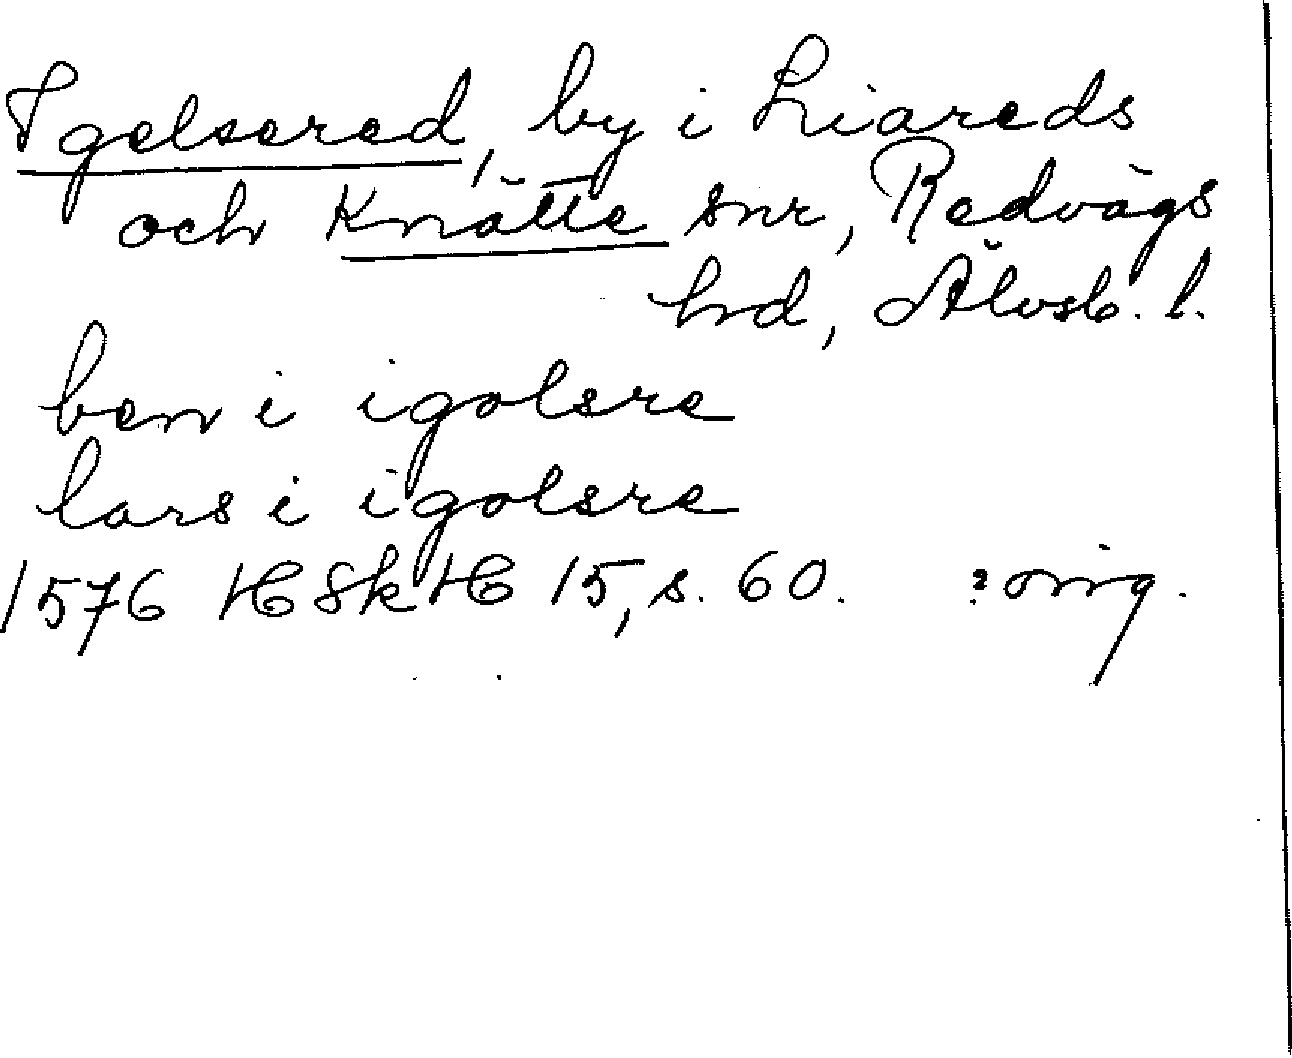 Igelsered, by i Liareds
och Knätte snr, Redvägs
hrd, Älvsb. l.
ben i igolsre
lars i igolsre
1576 HSkH 15, s. 60. ? orig.